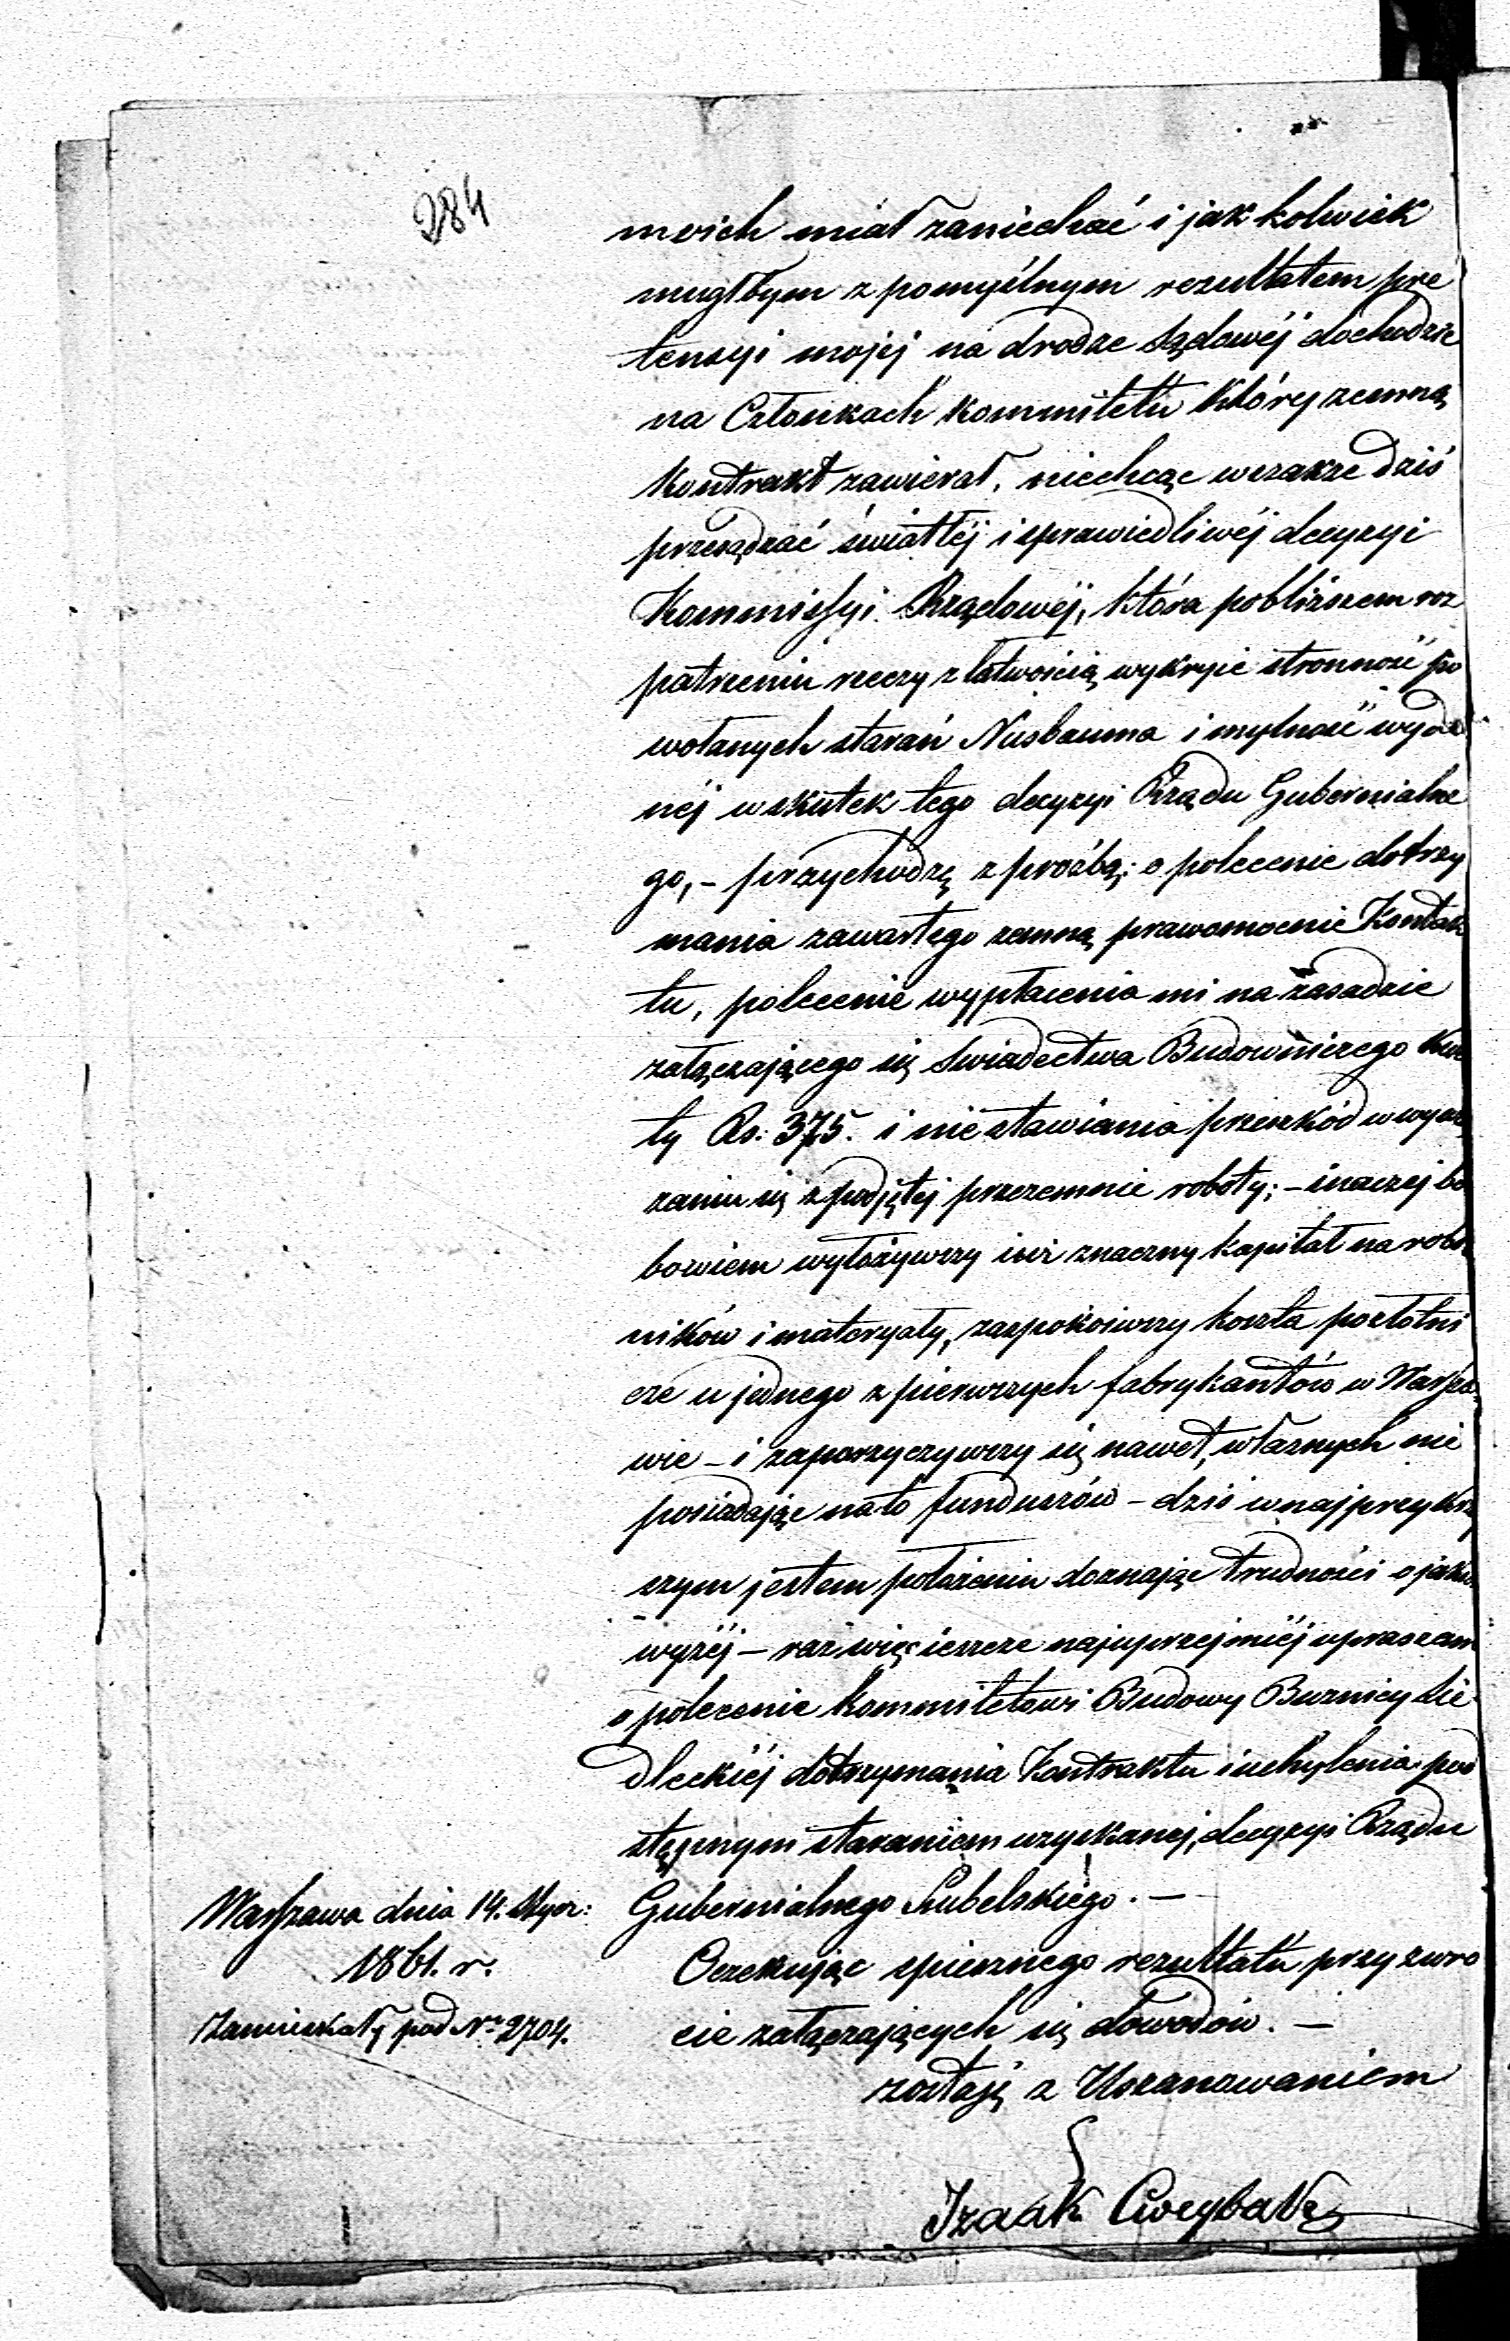 284
moich miał zaniechać i jak kolwiek
mugłbym z pomyślnym rezultatem pre
tensyi mojej na drodze Sądowéj dochodzić
na Członkach Kommitetu który zemną
Kontrakt zawierał, niechcąc wszakże dziś
przesądzać światłéj i sprawiedliwéj decyzyi
Kommissyi Rządowéj, która pobliższem roz
patrzeniu rzeczy z łatwością wykryie stronność po
wołanych starań Nusbauma i mylność wyda
néj w skutek tego decyzyi Rządu Gubernialne
go, – przychodzę z proźbą: o polecenie dotrzy
mania zawartego zemną prawomocnie Kontrak
tu, polecenie wypłacenia mi na zasadzie
załączającego się Swiadectwa Budowniczego Kwo
ty Rs: 375. i nie stawiania przeszkód w wywią
zaniu się z podjętej przezemnie roboty; – inaczej bo
bowiem wyłożywszy iuż znaczny kapitał na robot
ników i materyały, zaspokoiwszy koszta pozłotni
cze u jednego z pierwszych fabrykantów w Warsza
wie – i zaporzyczywszy się nawet, własnych nie
posiadając nato funduszów – dziś w najprzykrz
szym jestem położeniu doznając trudności o jakich
wyżéj – raz więc ieszcze najuprzejmiéj upraszam
o polecenie Kommitetowi Budowy Buznicy Sie
dleckiéj dotrzymania Kontraktu i uchylenia pod
stępnym staraniem uzyskanej, decyzyi Rządu
Gubernialnego Lubelskiego. –
Warszawa dnia 14. Stycz:
1861. r.
Zamieszkały pod No 2704.
Oczekując spiesznego rezultatu przy zwro
cie załączających się dowodów. –
zostaję z Uszanowaniem
Izaak Cweybak